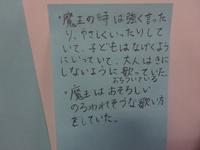 ・魔王の時は強く言った
り、やさしくいったりし
ていて、子どもはなげくよう
にいっていて、大人は気に
しないように歌っていた。
おちついている
・魔王はおそろしい
のろわれそうな歌い方
をしていた。